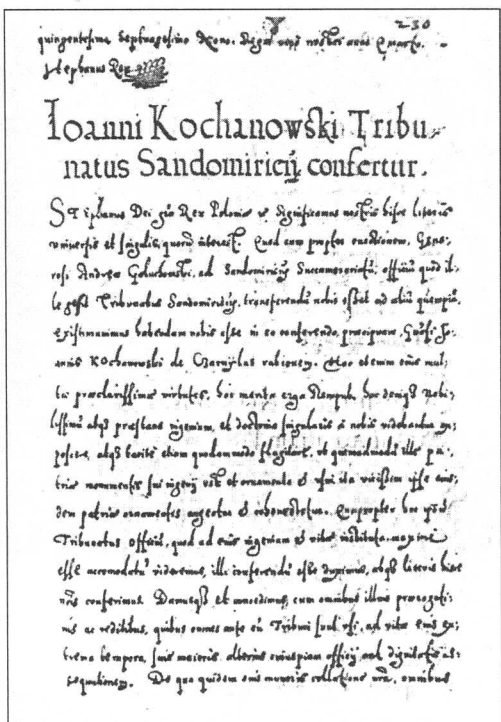 230
quingentesimo Septuagesimo Nono. Regni vero nostri anno Quarto.
Stephanus Rex
Ioanni Kochanowski Tribu-
natus Sandomiricñ confertur.
Stephanus Dei gra Rex Poloniæ Significamus nostris hisce literis
universis et singulis, quorũ interest. Quod cum propter
Andreæ Goluchowski, ad Sandomiricñ Succamerariatũ, officiũ quod il-
le gessit Tribunatus Sandomiricñ, transferendũ nobis esset ad aliũ quempiã,
existimavimus habendam nobis esse in eo conferendo, præcipuam, Gñosi Jo-
annis Kochanowski de Czarnylas rationem. Hæc etenim eius mul-
tæ præclarissimæ virtutes, hoc meritæ erga Rempub. hoc deniq nobi-
lissimũ atq præstans ingenium, et doctrina singularis a nobis videbantur
poscere, atq tacite etiam quodammodo flagitare, ut quemadmodũ ille pa-
triæ ingenij et ornamento ita vicissim ipse eius-
dem patriæ Quapropter hoc
Tribunatus Officiũ, quod ad eius ingenium et vitæ instituta maxime
esse accomodatũ videremus, illi conferendũ esse duximus, atq literis hisce
nris conferimus. Damusq et concedimus, cum omnibus illius prærogati-
vis ac reditibus, quibus omnes ante eũ Tribuni sunt usi, ad vitæ eius ex-
trema tempora, alterius cuiuspiam officij, aut dignitatis as-
sequutionem. De qua quidem eius muneris collatione nrã, omnibus